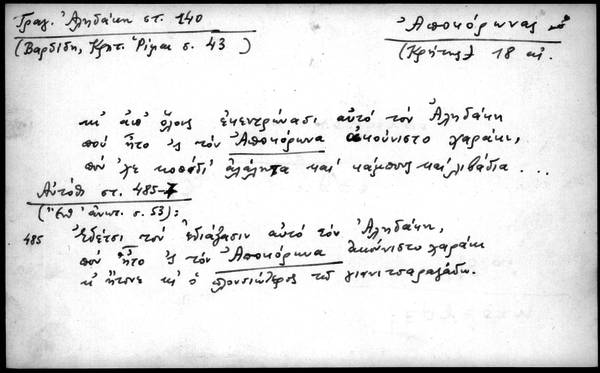 Τραγ. Ἀληδάκη στ. 140
(Βαρδίδη, Κρητ. Ρίμαι σ. 43 )
Ἀποκόρωνας
(Κρήτης) 18 αἰ.
κι ἀπ' ὅλους ἐκεντρώνασι αὐτό τόν Ἀληδάκη
πού ἦτο 'ς τόν Ἀποκόρωνα ἀκούνιστο χαράκι,
πού 'χε κοπάδι' ἀλάλητα καί κάμπους καί λιβάδια ...
Αὐτόθι στ. 485-7
(ἔνθ' ἀνωτ. σ. 53):
485 Ἐδέτσι τον ἐδιάβασιν αὐτό τόν Ἀληδάκη,
πού ἦτο 'ς τόν Ἀποκόρωνα ἀκούνιστο χαράκι
κι ἤτονε κι ὁ πλουσιώτερος τῶ γιανιτσαραγάδω.